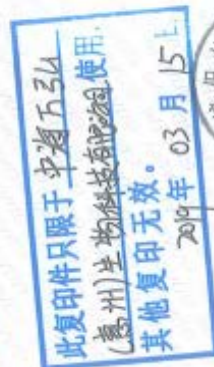 此复印件只限于 中海万弘
(惠州)生物科技有限公司 使用.
其他复印无效。
2019年 03月 15